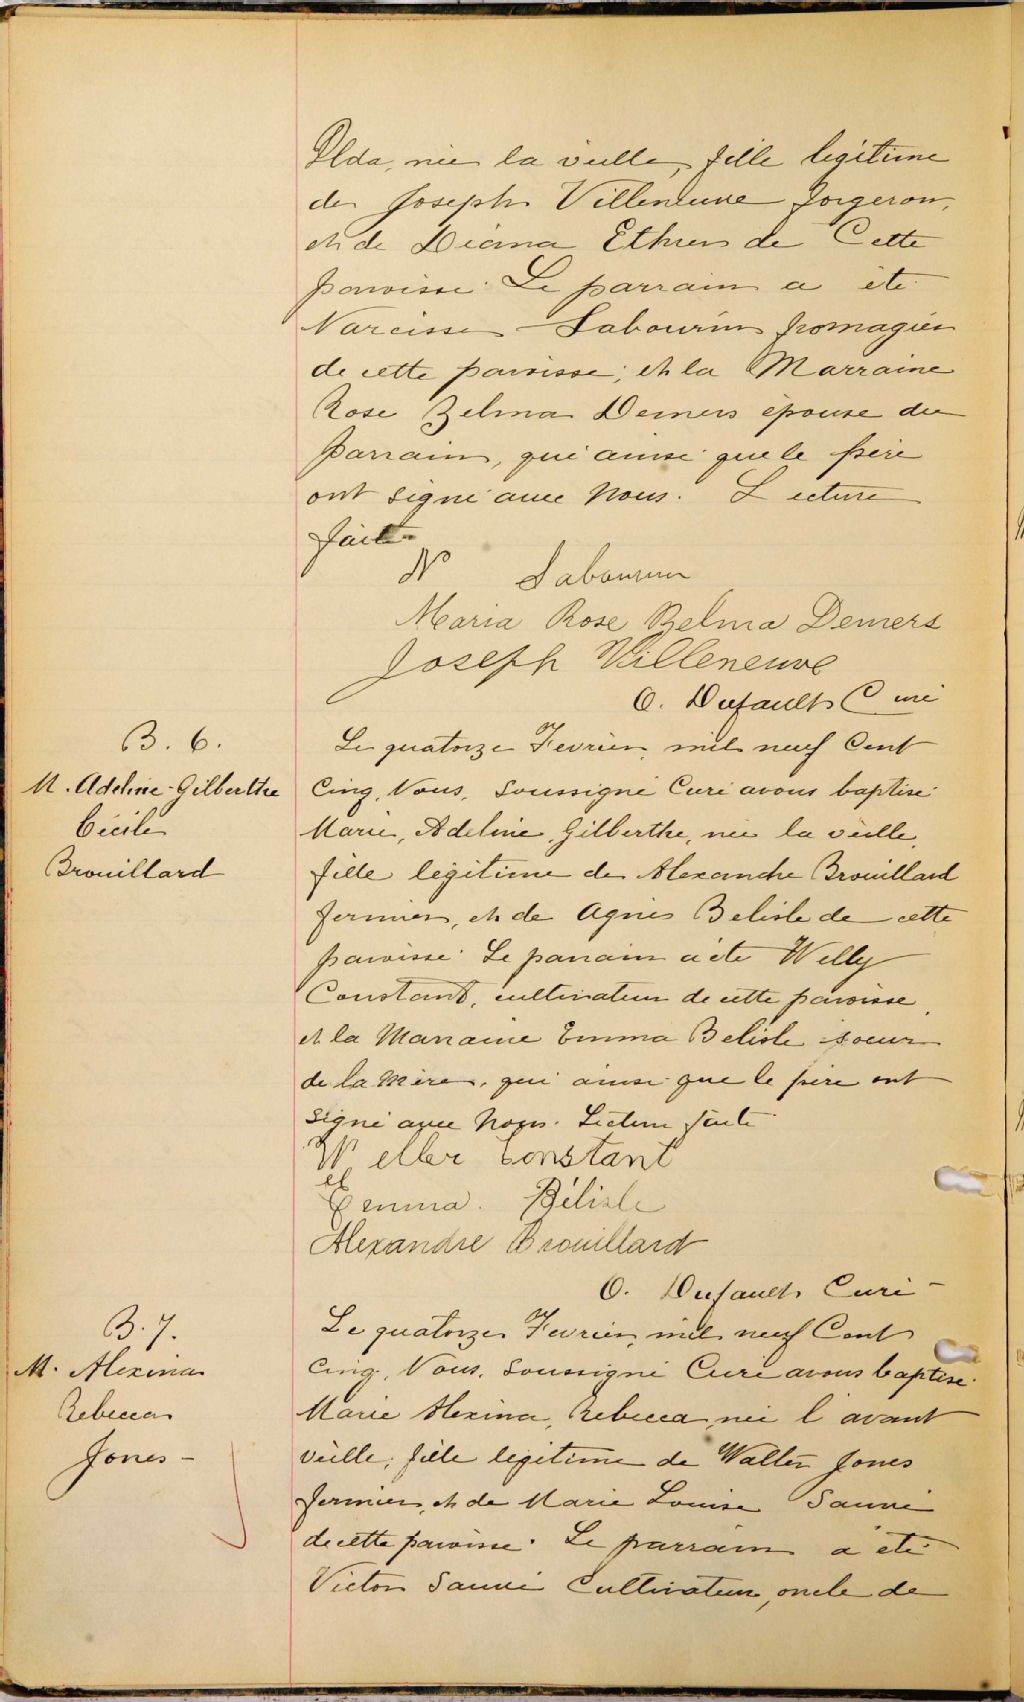 Ilda, née la veille, fille legitime
de Joseph Villeneuve forgeron,
et de Diana Ethier de Cette
paroisse. Le parrain a été
Narcisse Sabourin fromagier
de cette paroisse; et la Marraine
Rose Zelma Demers épouse du
parrain, qui ainsi que le père
ont signé avec Nous. Lecture
faite.
N Sabourin
Maria Rose Zelma Demers
Joseph Villeneuve
O. Dufault Curé
B. 6.
M. Adeline-Gilberthe
Cécile
Brouillard
Le quatorze Fevrier, mil neuf Cent
Cinq, Nous, Soussigné Curé avons baptisé
Marie, Adeline, Gilberthe, née la veille,
fille légitime de Alexandre Brouillard
fermier, et de Agnes Belisle de cette
paroisse. Le parrain a été Willy
Constant, cultivateur de cette paroisse,
et la Marraine Emma Belisle soeur
de la Mère, qui ainsi que le père ont
signé avec Nous. Lecture faite
Constant
et
Emma. Bélisle
Alexandre Brouillard
O. Dufault Curé -
B. 7.
M. Alexina
Rebecca
Jones -
Le quatorze Fevrier, mil neuf Cent
Cinq, Nous, Soussigné Curé avons baptisé
Marie Alexina, Rebecca, née l'avant
veille, fille legitime de Walter Jones
fermier, et de Marie Louise Sauvé
de cette paroisse. Le parrain a été
Victor Sauvé Cultivateur, oncle de